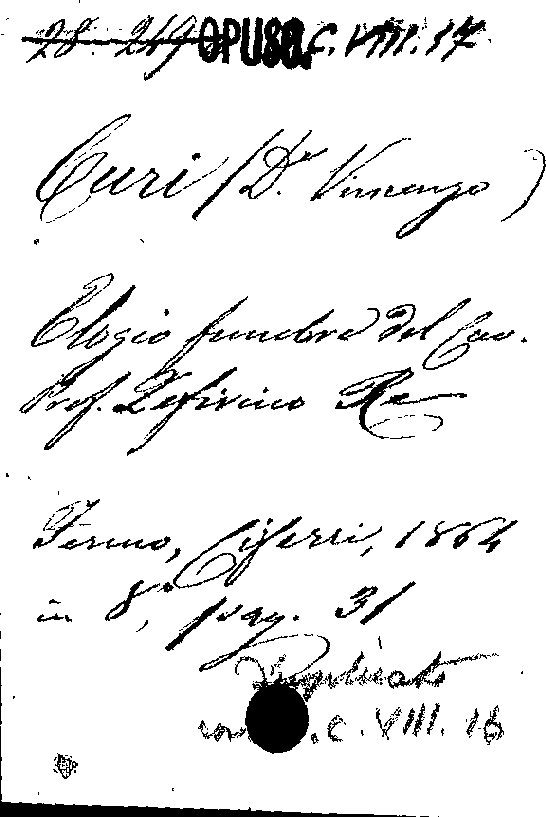 28. 219 OPUSC. C. VIII. 17
Curi (Dr. Vincenzo)
Elogio funebre del Cav.
Prof. Zefirino Re
Fermo, Ciferri, 1864
in 8°, pag. 31
Duplicato
con .C. VIII. 18